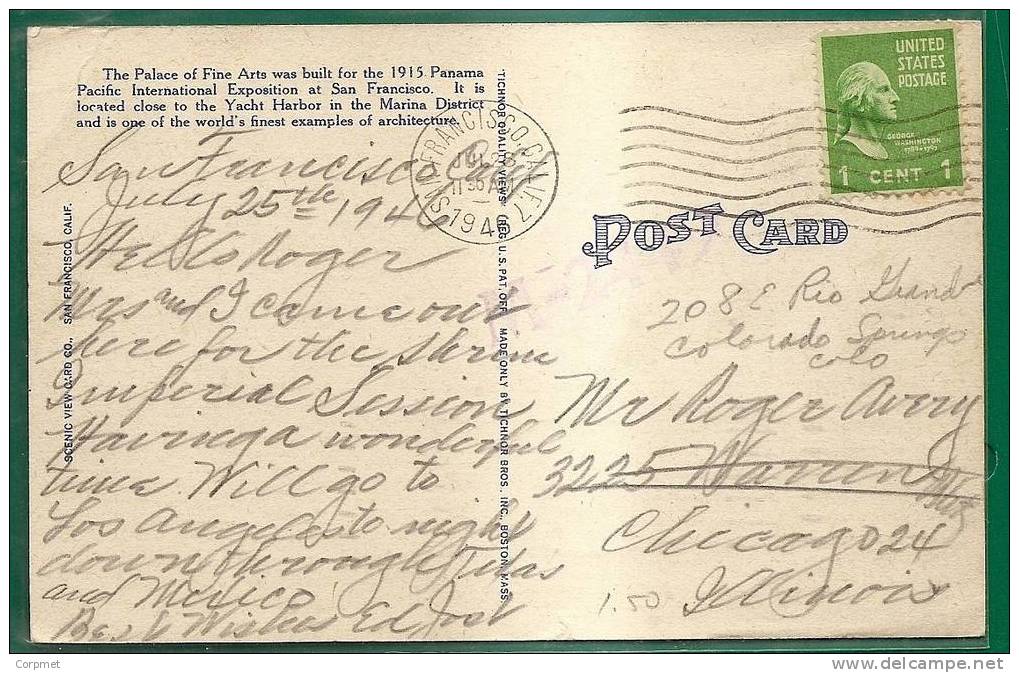 The Palace of Fine Arts was built for the 1915 Panama
Pacific International Exposition at San Francisco. It is
located close to the Yacht Harbor in the Marina District
and is one of the world's finest examples of architecture.
San Francisco Calif
July 25th 1946
Hello Roger
Mrs and I came out
here for the Shrine
Imperial Session
Having a wonderful
time Will go to
Los Angeles to night
down through Texas
and Mexico
Best Wishes Ed Jost
SCENIC VIEW CARD CO., SAN FRANCISCO, CALIF.
"TICHNOR QUALITY VIEWS" REG. U. S. PAT. OFF. MADE ONLY BY TICHNOR BROS., INC., BOSTON, MASS.
SAN FRANCISCO, CALIF. 7
JUL 26
11 30 AM
1946
UNITED
STATES
POSTAGE
GEORGE
WASHINGTON
1789-1797
1 CENT 1
POST CARD
208 E Rio Grande
Colorado Springs
Colo
Mr Roger Avery
3225 Warren
Chicago 24
Illinois
1.50
Corpmet
www.delcampe.net